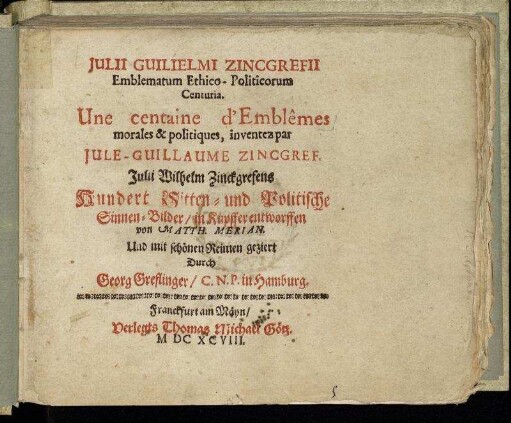 JULII GUILIELMI ZINCGREFII
Emblematum Ethico-Politicorum
Centuria.
Une centaine d'Emblêmes
morales & politiques, inventez par
JULE-GUILLAUME ZINCGREF.
Julii Wilhelm Zinckgrefens
Hundert Sitten- und Politische
Sinnen-Bilder/ in Kupffer entworffen
von MATTH. MERIAN.
Und mit schönen Reimen geziert
Durch
Georg Greflinger/ C. N. P. in Hamburg.
Franckfurt am Mäyn/
Verlegts Thomas Michael Götz.
M DC XCVIII.
5